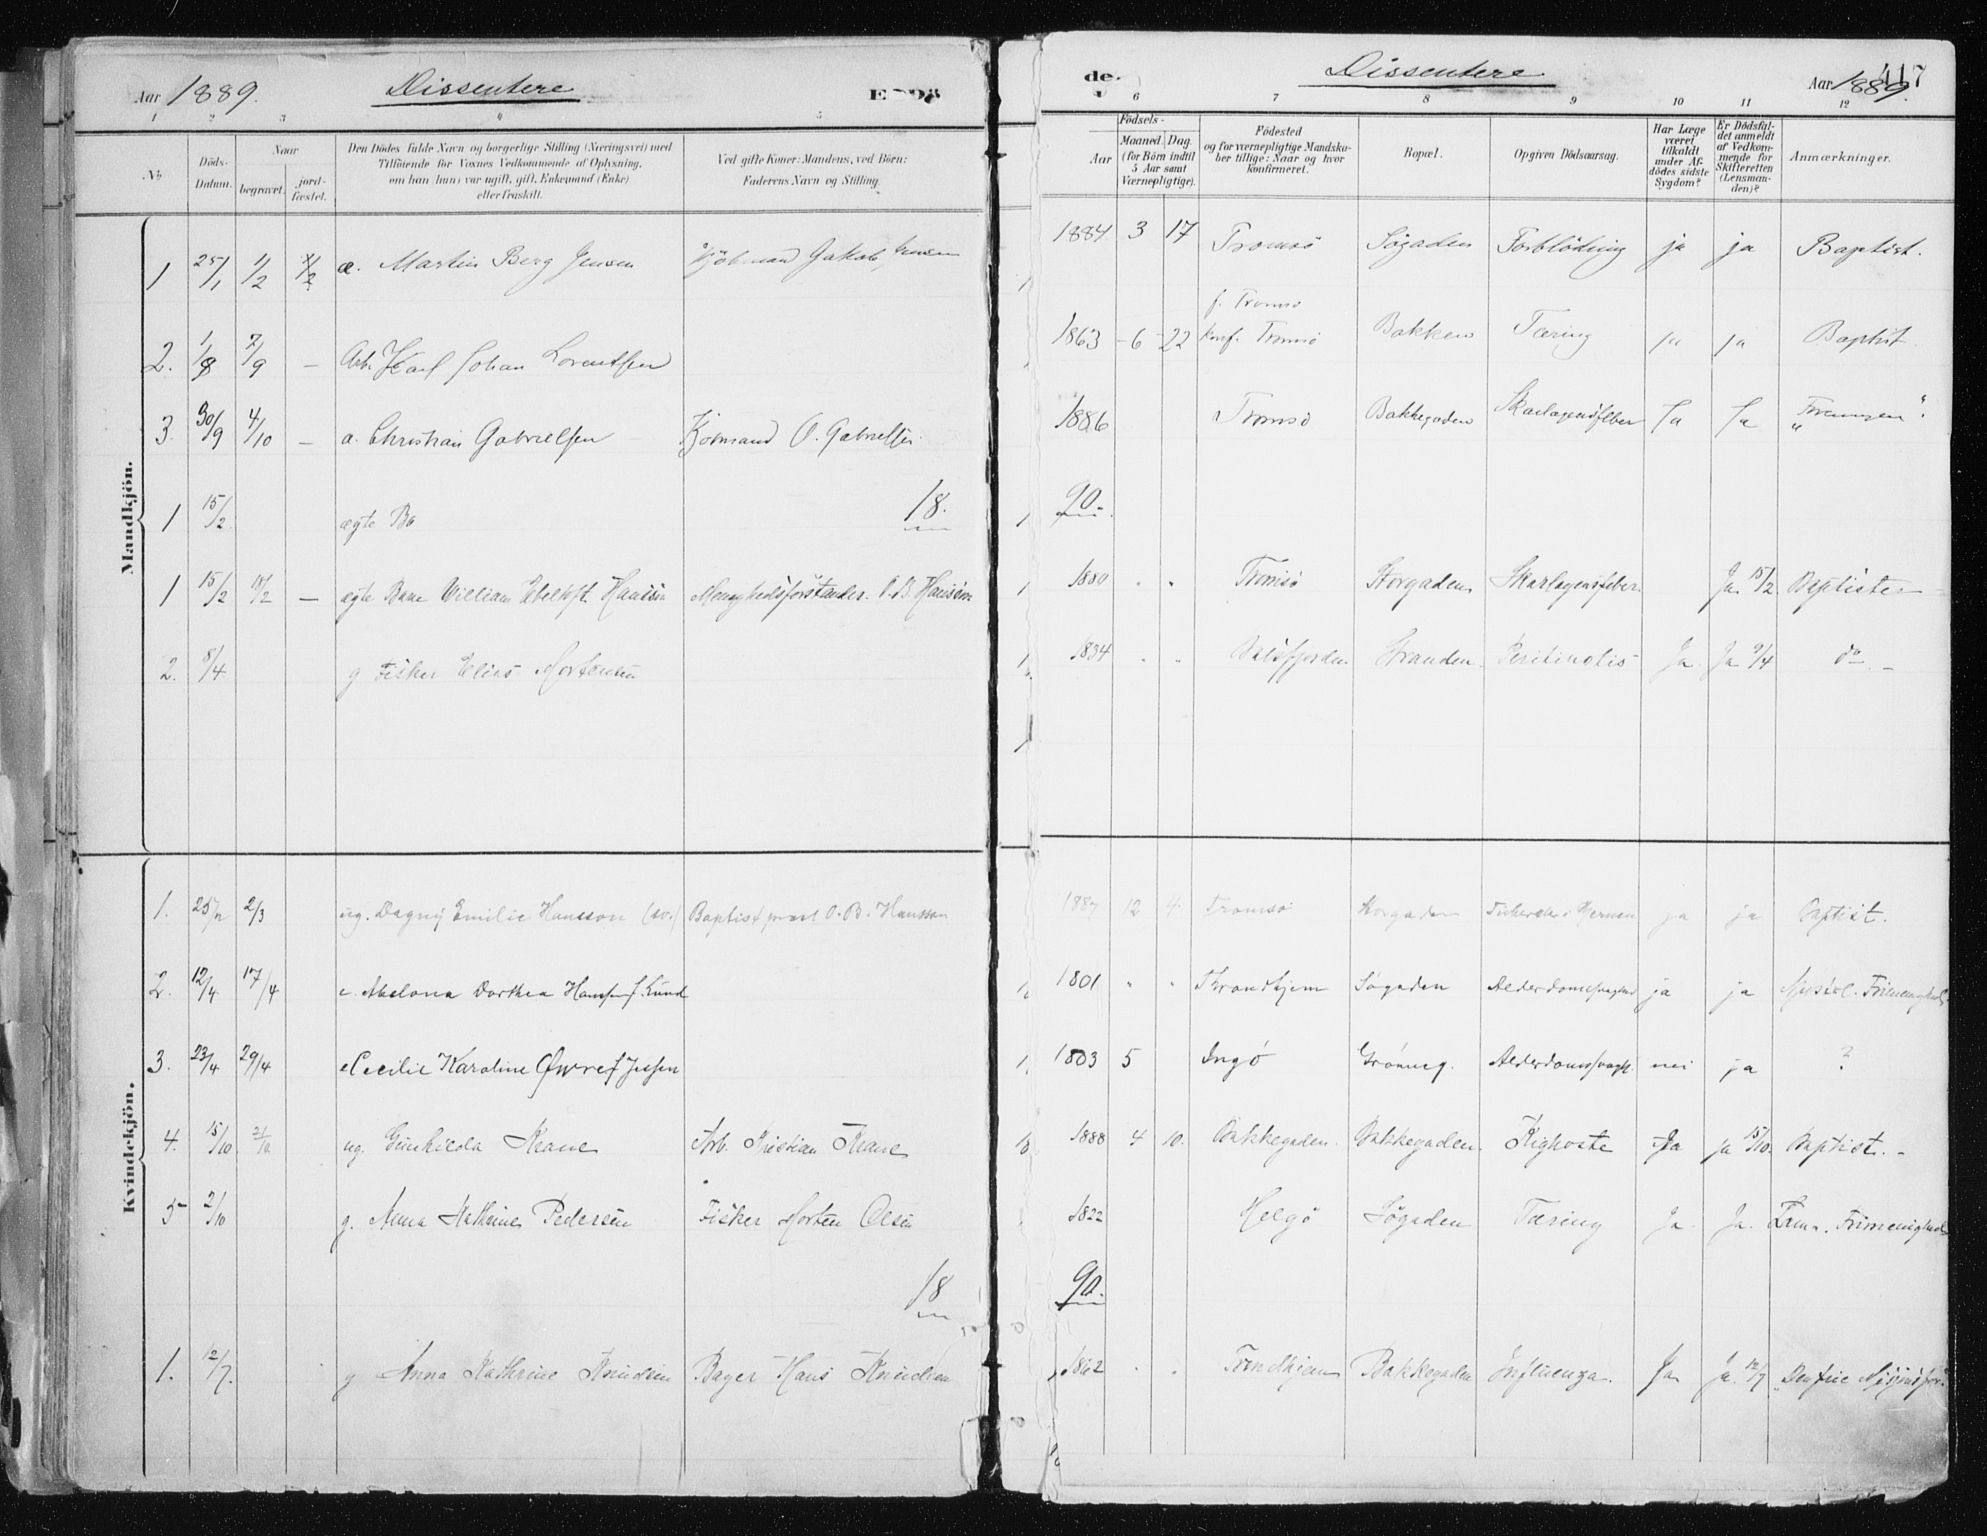 Aar 1889. Dissentere
Dissentere Aar 1889. 417
1 2 3 4 5
6 7 8 9 10 11 12
№ Döds-Datum. Naar begravet. jord-fæstet. Den Dödes fulde Navn og borgerlige Stilling (Næringsvei) med Tilföiende for Voxnes Vedkommende af Oplysning, om han (hun) var ugift, gift, Enkemand (Enke) eller fraskilt. Ved gifte Koner: Mandens, ved Börn: Faderens Navn og Stilling.
Födsels- Aar Maaned. Dag (for Börn indtil 5 Aar samt Værnepligtige). Födested og for værnepligtige Mandskaber tillige: Naar og hvor konfirmeret. Bopæl. Opgiven Dödsaarsag. Har Læge været tilkaldt under Afdödes sidste Sygdom? Er Dödsfaldet anmeldt af Vedkommende for Skifteretten (Lensmanden)? Anmærkninger.
Mandkjön.
1 25/1 1/2 1/2 æ. Martin Berg Jensen Kjöbmand Jakob Jensen 1884 3 17 Tromsö Søgaden Forblödning ja ja Baptist.
2. 2/9 – Arb. Karl Johan Lorentsen 1863 6 22 f. Tromsö konf. Tromsö Bakken Tæring ja ja Baptist
3. 30/9 4/10 – æ. Christian Gabrielsen Kjöbmand O. Gabrielsen 1886 Tromsö Bakkegaden Skarlagensfeber Ja Ja
1 15/2 ægte Ba
1890.
1 15/2 18/2 – ægte Barn William Hansen Menighedsforstander O. B. Hansen 1880 " " Tromsö Storgaden Skarlagensfeber Ja 15/2 Baptister
2. 8/4 g. Fisker Elias Mortensen 1834 " " Balsfjorden Stranden Ja Ja 9/4 do –
Kvindekjön.
1. 25/2 2/3 ug. Dagny Emilie Hansson Baptistpræst O. B. Hansson 1887 12 4 Tromsö Storgaden Tuberkler i Hjernen ja ja Baptist.
2. 12/4 17/4 e. Abelona Dorthea Hansen f. Lund 1801 " " Throndhjem Søgaden ja ja
3. 23/4 29/4 e. Cecilie Karoline f. Jessen 1803 5 Ingö Grönneg. nei ja ?
4. 15/10 ug. Gunhilda Krane Arb. Kristian Krane 1888 4 10. Bakkegaden. Bakkegaden. Kighoste Ja Ja 15/10. Baptist. –
5 2/10 g. Anna Kathrine Pedersen Fisker Morten Olsen 1822 Helgö Søgaden Tæring Ja. Ja.
1890.
1. 12/7. g. Anna Kathrine Knudsen Bager Hans Knudsen 1862 " " Trondhjem Bakkegaden Influenza. Ja Ja 12/7